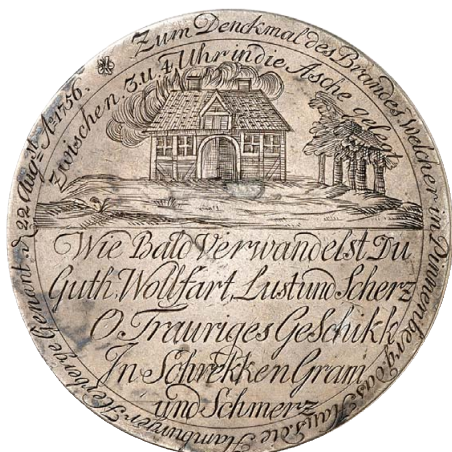 Zum Denckmal des Brandes Welcher in Dannenberg das Haus die Hamburger Herberge Genant. d. 22 Augst. Ao. 1756.
Zwischen 3 u. 4 Uhr in die Asche gelegt
Wie Bald Verwandelst Du
Guth, Wollfart, Lust und Scherz
O. Trauriges Geschikk
In Schrekken Gram
und Schmerz